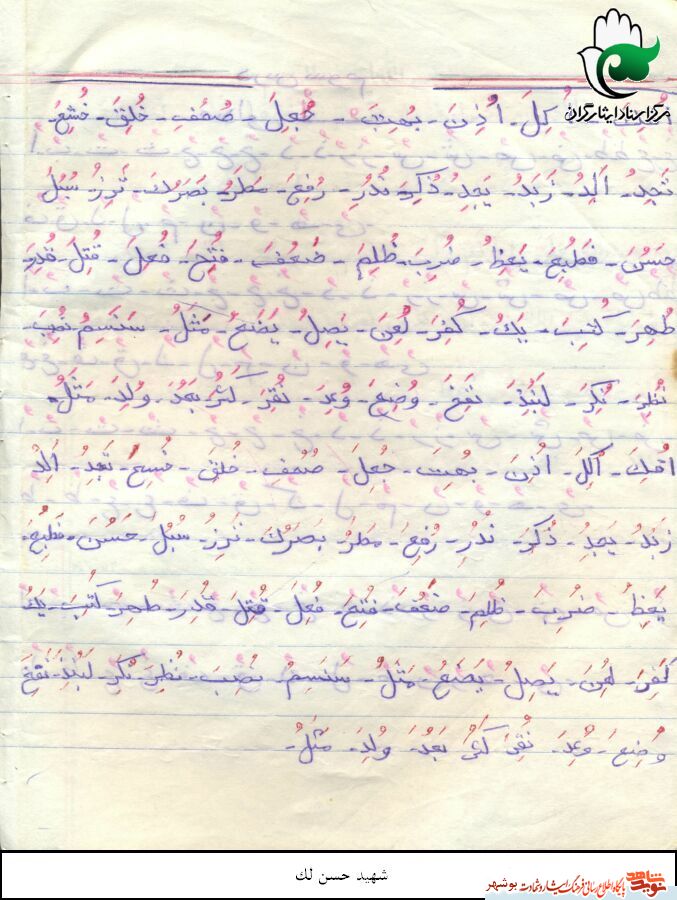 مرکز اسناد ایثارگران
اُكِلَ - اُذِنَ - بُهِتَ - جُعِلَ - صُحُفِ - خُلِقَ - خُشِعَ -
تَجِدُ - اَلِدُ - زَبَدُ - یَجِدُ - ذُکِرَ - نُذُرِ - رُفِعَ - مَطَرُ - بَصَرُكَ - تَزِرُ - سُبُل
حَسُنَ - فَطُبِعَ - یَعِظُ - ضُرِبَ - ظُلِمَ - ضَعُفَ - فُتِحَ - فُعِلَ - قُتِلَ - قُدِرَ
طُهِرَ - كُتِبَ - یَكُ - كُفِرَ - لُعِنَ - یَصِلُ - یَضَعُ - مَثَلُ - سَنَسِمُ - نُصِبَ -
نُظِرَ - نُكِرَ - لَنُبِذَ - نُفِخَ - وُضِعَ - وُعِدَ - نُقِرَ - كَبُرَ - بَعُدَ - وُلِدَ - مَثَلُ -
اُكِلَ - اُذِنَ - بُهِتَ - جُعِلَ - صُحُف - خُلِقَ - خُشِعَ - تَجِدُ - اَلِدُ
زَبَدُ - یَجِدُ - ذُكِرَ - نُذُرِ - رُفِعَ - مَطَرُ - بَصَرُكَ - تَزِرُ - سُبُل - حَسُنَ - فَطُبِعَ -
یَعِظُ - ضُرِبَ - ظُلِمَ - ضَعُفَ - فُتِحَ - فُعِلَ - قُتِلَ - قُدِرَ - طُهِرَ - كُتِبَ - یَكُ
كُفِرَ - لُعِنَ - یَصِلُ - یَضَعُ - مَثَلُ - سَنَسِمُ - نُصِبَ - نُظِرَ - نُكِرَ - لَنُبِذَ - نُفِخَ
وُضِعَ - وُعِدَ - نُقِرَ - كَبُرَ - بَعُدَ - وُلِدَ - مَثَلُ -
شهید حسن لك
نوید شاهد پایگاه اطلاع رسانی فرهنگ ایثار و شهادت بوشهر